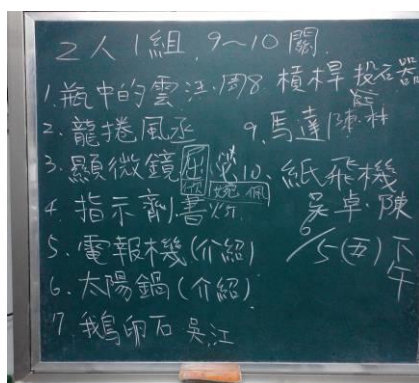 2人1組. 9~10關.
1. 瓶中的雲 江.周
8. 槓桿 投石器
2. 龍捲風 丞
9. 馬達 陳.林
3. 顯微鏡
10. 紙飛機
吳.卓.陳
4. 指示劑 書
5. 電報機(介紹)
6/5(五)下午
6. 太陽鍋(介紹)
7 鵝卵石 吳.江